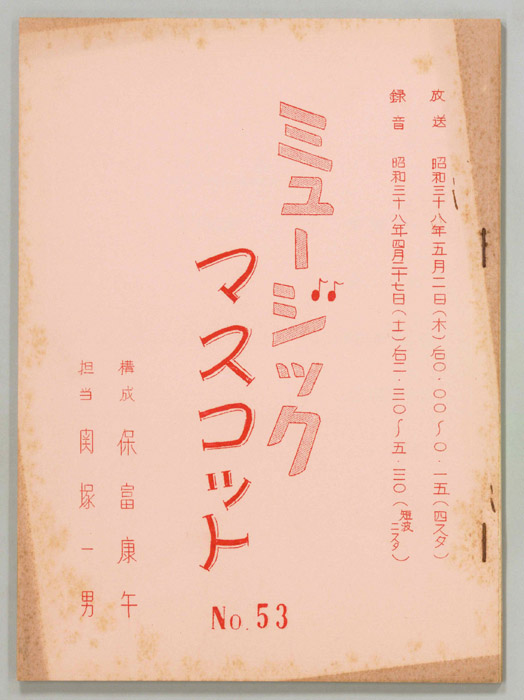 放送 昭和三十八年五月二日(木)后〇・〇〇〜〇・一五(四スタ)
録音 昭和三十八年四月二十七日(土)后二・三〇〜五・三〇(短波二スタ)
ミュージック
マスコット
No. 53
構成 保富康午
担当 関塚一男